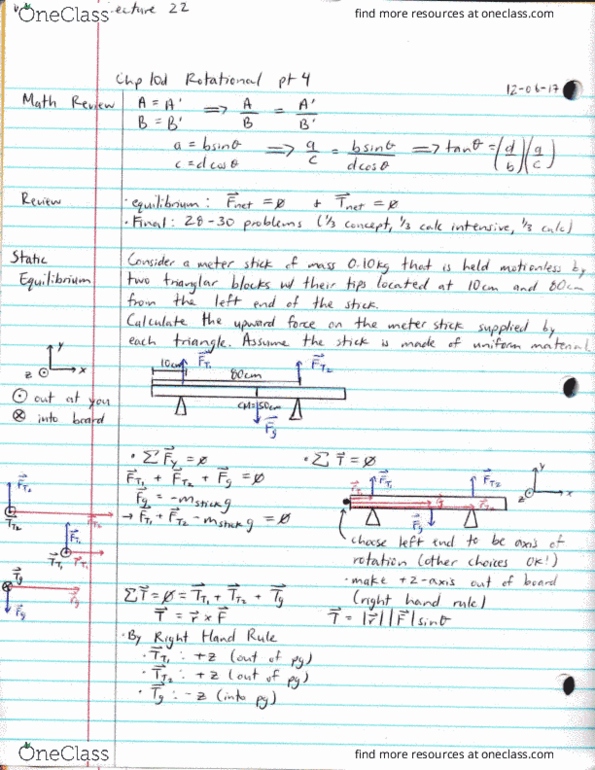 OneClass
ecture 22
find more resources at oneclass.com
Chp 10d Rotational pt 4
12-06-17
Math Review
A = A' ⟹ A/B = A'/B'
B = B'
a = bsinθ ⟹ a/c = bsinθ/dcosθ ⟹ tanθ = (d/b)(a/c)
c = dcosθ
Review
· equilibrium: F⃗net = ∅ + T⃗net = ∅
· Final: 28-30 problems (⅓ concept, ⅓ calc intensive, ⅓ calc)
Static Equilibrium
Consider a meter stick of mass 0.10kg that is held motionless by
two trianglar blocks w/ their tips located at 10cm and 80cm
from the left end of the stick.
Calculate the upward force on the meter stick supplied by
each triangle. Assume the stick is made of uniform material.
y
z x
⊙ out at you
⊗ into board
10cm
F⃗T₁
80cm
F⃗T₂
CM=50cm
F⃗g
· ΣF⃗y = ∅
F⃗T₁ + F⃗T₂ + F⃗g = ∅
F⃗g = -mstick g
→ F⃗T₁ + F⃗T₂ - mstick g = ∅
· ΣT⃗ = ∅
F⃗T₁
F⃗T₂
F⃗g
y
z x
choose left end to be axis of
rotation (other choices OK!)
· make +z-axis out of board
(right hand rule)
T⃗ = |r⃗||F⃗|sinθ
F⃗T₂
T⃗T₂
r⃗T₂
F⃗T₁
T⃗T₁
r⃗T₁
T⃗g
r⃗g
F⃗g
ΣT⃗ = ∅ = T⃗T₁ + T⃗T₂ + T⃗g
T⃗ = r⃗ x F⃗
· By Right Hand Rule
· T⃗T₁ : +z (out of pg)
· T⃗T₂ : +z (out of pg)
· T⃗g : -z (into pg)
OneClass
find more resources at oneclass.com